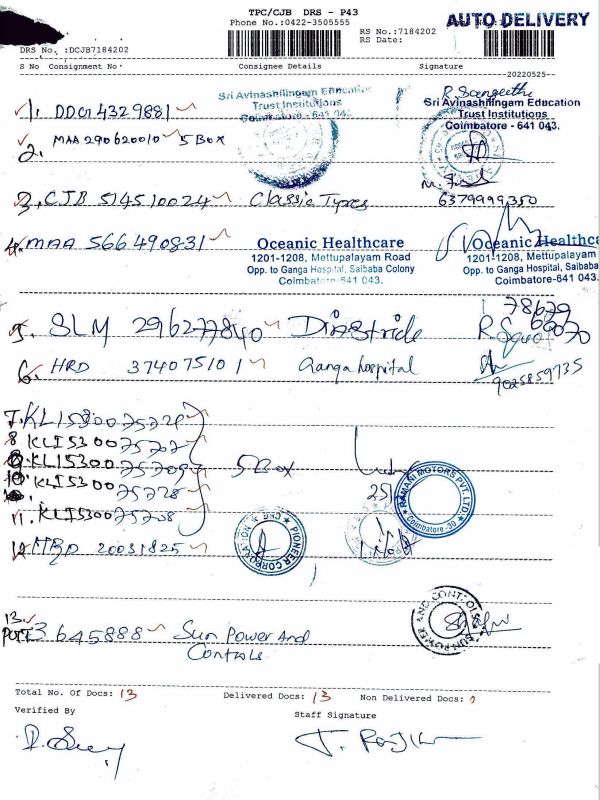 TPC/CJB DRS - P43
Phone No.:0422-3505555
AUTO DELIVERY
RS No.:7184202
RS Date:
DRS No. :DCJB7184202
S No Consignment No Consignee Details Signature
20220525
Sri Avinashilingam Education
Trust Institutions
Coimbatore - 641 043.
R. Sangeetha
Sri Avinashilingam Education
Trust Institutions
Coimbatore - 641 043.
1. DDG 4329881
2. MAA 290620010 5 Box
3. CJB 514510024 Classic Tyres
6379999350
4. MAA 566490831
Oceanic Healthcare
1201-1208, Mettupalayam Road
Opp. to Ganga Hospital, Saibaba Colony
Coimbatore-641 043.
Oceanic Healthca
1201-1208, Mettupalayam
Opp. to Ganga Hospital, Saibaba
Coimbatore-641 043.
5. SLM 296277840
6. HRD 374075101 Ganga hospital
9025859735
7. KL15300
8 KL15300
9. KL15300
10. KL15300 75728
5 Box
RAMANI MOTORS PVT. LTD.
Coimbatore-30
11. KL15300
PIONEER CORPORATION CBE
12. 20031825
13. 3645888 Sun Power And
Controls
SUN POWER AND CONTROLS
Total No. Of Docs: 13 Delivered Docs: 13 Non Delivered Docs: 0
Verified By Staff Signature